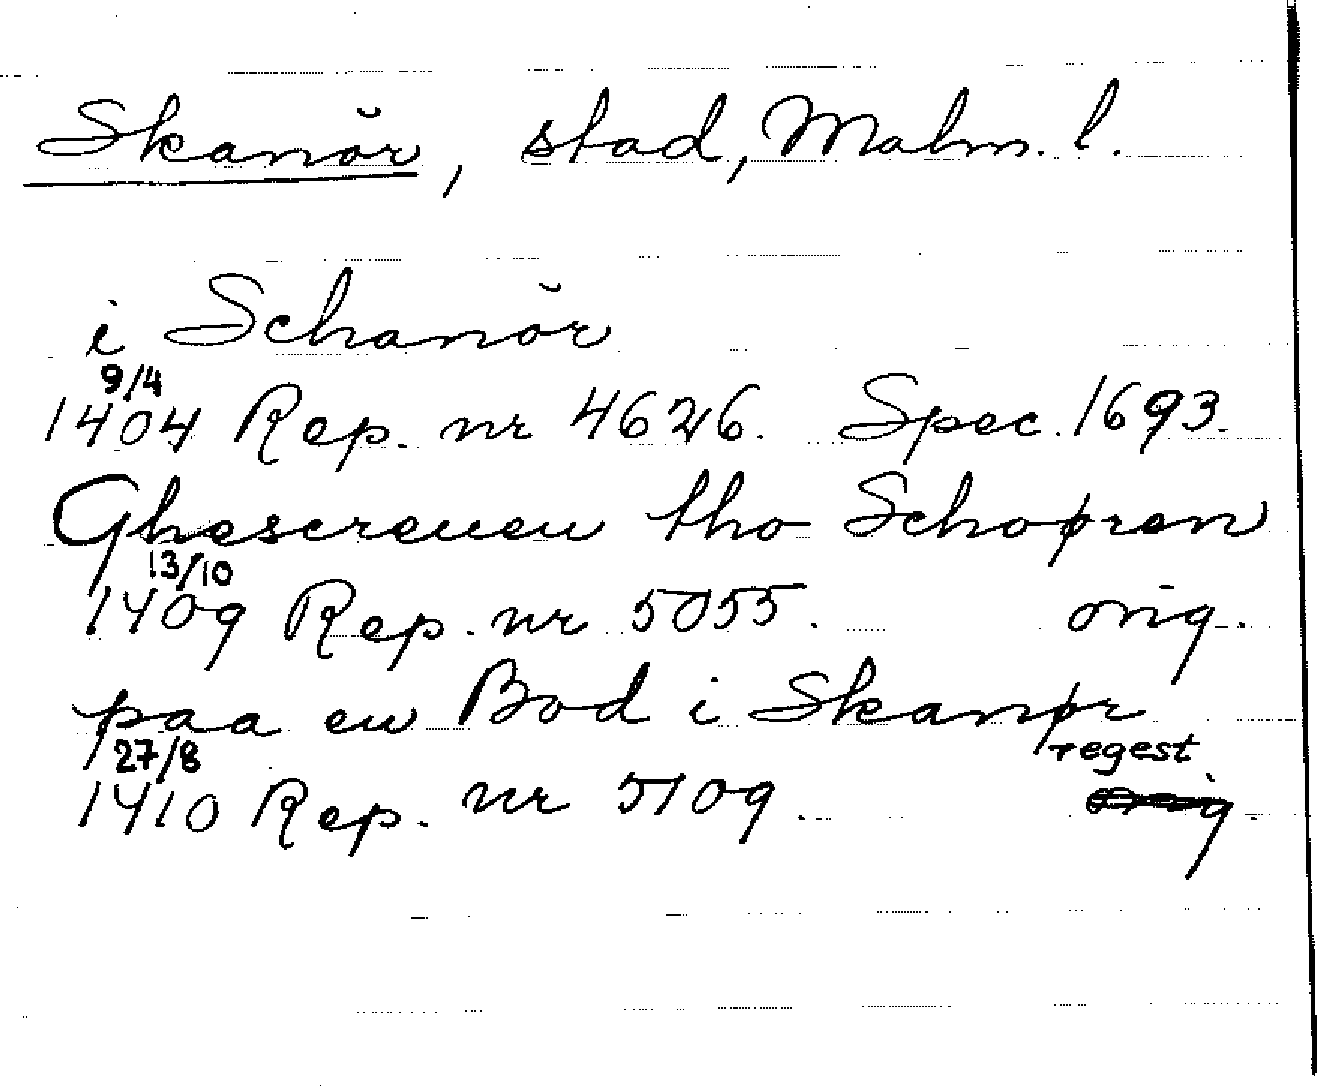 Skanör, stad, Malm. l.
i Schanör
9/4
1404 Rep. nr 4626. Spec. 1693.
Ghescreuen tho Schopren
13/10
1409 Rep. nr 5055. orig.
paa en Bod i Skanør
27/8 regest
1410 Rep. nr 5109. orig.